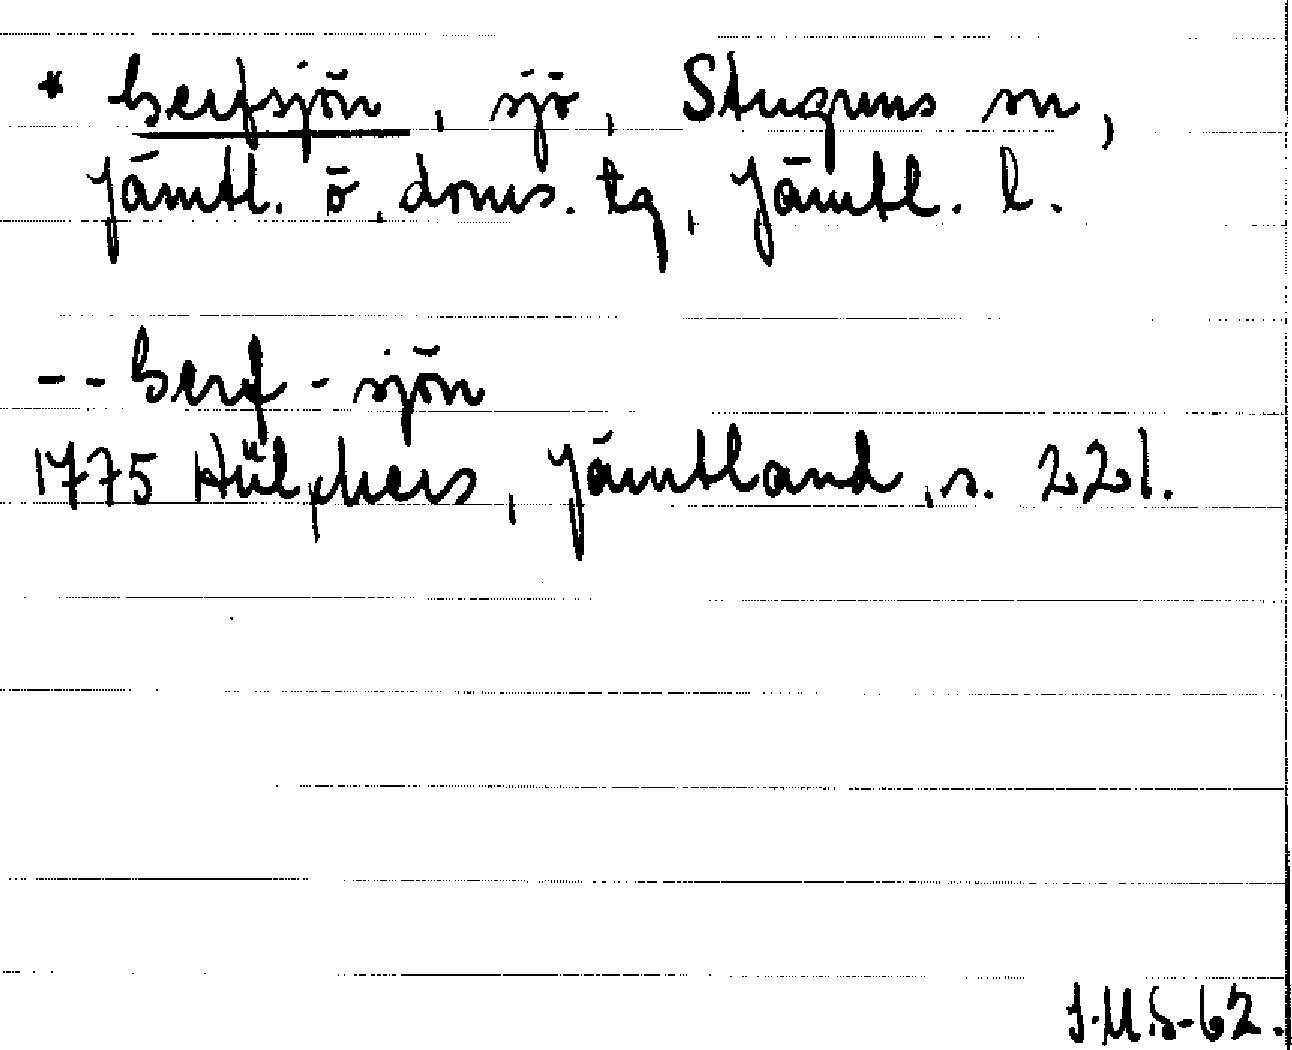 * Gerfsjön, sjö, Stuguns sn,
Jämtl. ö. doms. tg, Jämtl. l.
-- Gerf-sjön
1775 Hülphers, Jämtland, s. 221.
J.M.S-62.